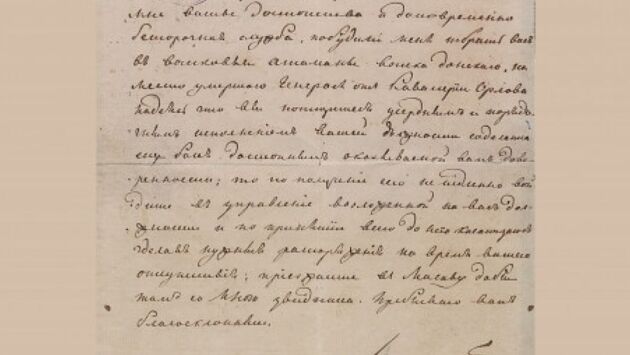 мнѣ ваши достоинства и долговременно
безпорочная служба, побудили меня избрать васъ
въ войсковые атаманы войска донскаго, на
место умершаго Генерала отъ Кавалеріи Орлова
надеясь что вы потщитесь усерднымъ и
исполненіемъ вашей должности
себя достойнымъ оказываемой вамъ дове-
ренности; то по полученіи сего немедленно вой-
дите въ управленіе возложенной на васъ дол-
жности и по принятіи всего до нея касающагося
зделавъ нужныя распоряженія на время вашего
отсутствія; пріезжайте въ Москву дабы
тамъ со Мною увидится. Пребываю вамъ
благосклоннымъ.